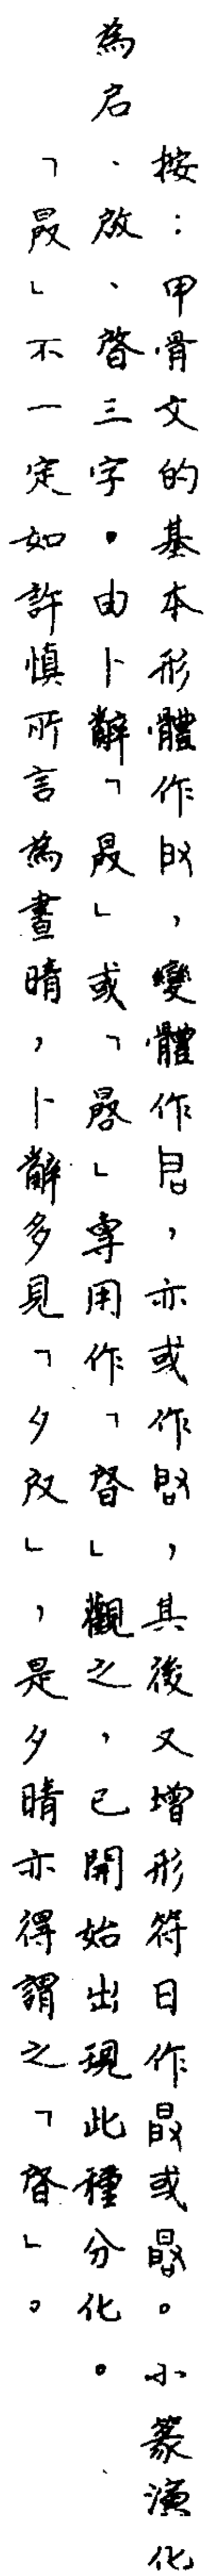 按：甲骨文的基本形體作，變體作，亦或作，其後又增形符日作或。小篆演化
為启、啟、晵三字。由卜辭「」或「」專用作「晵」觀之，已開始出現此種分化。
「」不一定如許慎所言為晝晴，卜辭多見「夕」，是夕晴亦得謂之「晵」。